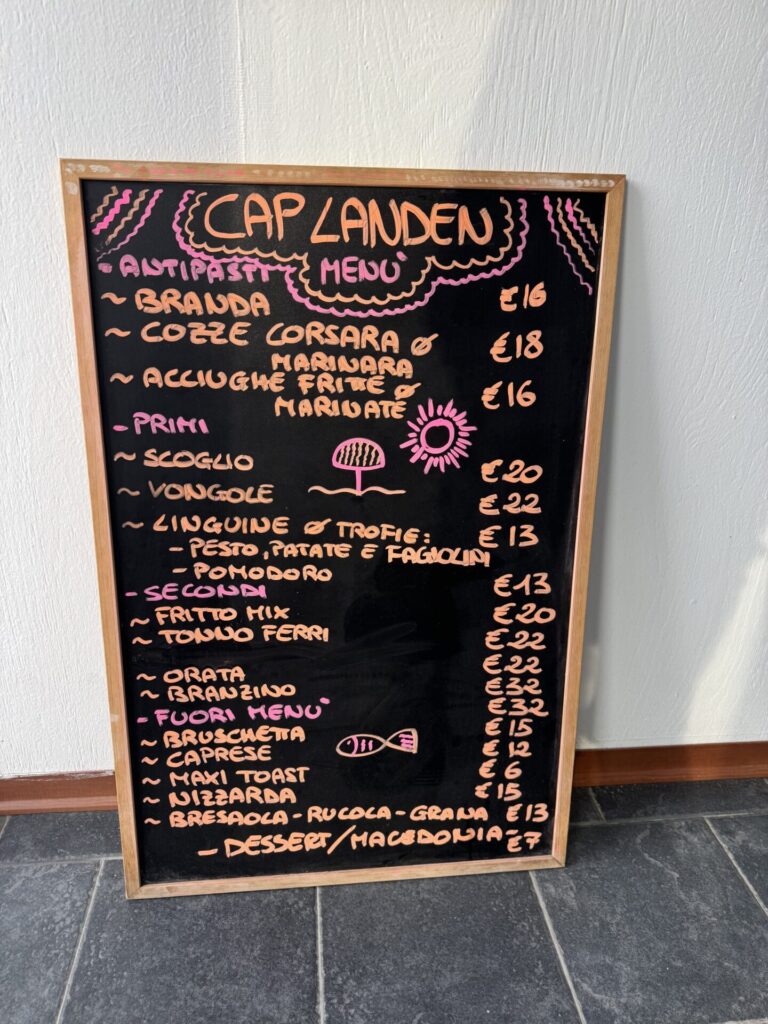 CAP LANDEN
- ANTIPASTI MENÙ
~ BRANDA €16
~ COZZE CORSARA Ø €18
MARINARA
~ ACCIUGHE FRITTE Ø €16
MARINATE
- PRIMI
~ SCOGLIO €20
~ VONGOLE €22
~ LINGUINE Ø TROFIE: €13
- PESTO, PATATE E FAGIOLINI
- POMODORO €13
- SECONDI
~ FRITTO MIX €20
~ TONNO FERRI €22
€22
~ ORATA €32
~ BRANZINO €32
- FUORI MENÙ
~ BRUSCHETTA €15
~ CAPRESE €12
~ MAXI TOAST €6
~ NIZZARDA €15
~ BRESAOLA - RUCOLA - GRANA €13
- DESSERT/MACEDONIA - €7